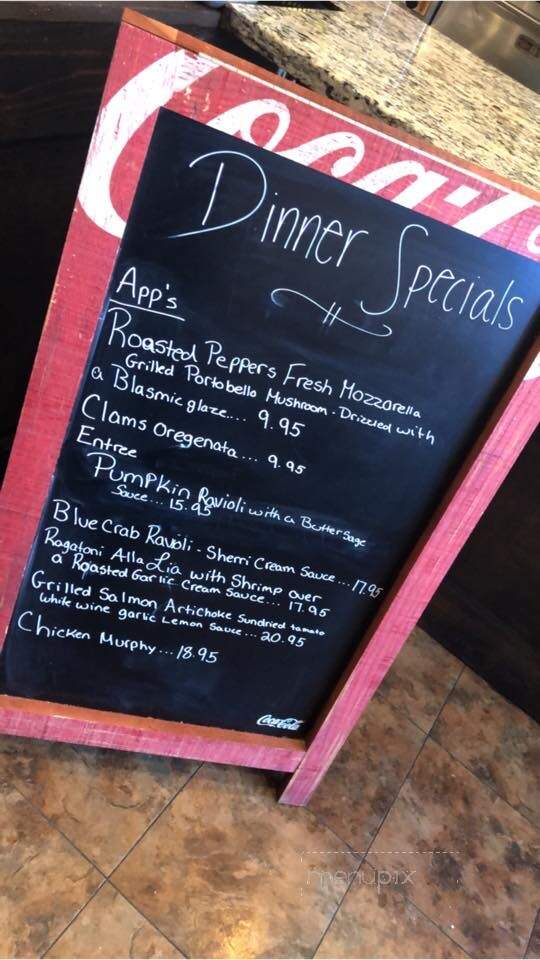 Coca-Co
Dinner Specials
App's
Roasted Peppers Fresh Mozzarella
Grilled Portobello Mushroom - Drizzled with
a Blasmic glaze.... 9.95
Clams Oregenata... 9.95
Entree
Pumpkin Ravioli with a Butter Sage
Sauce... 15.95
Blue Crab Ravioli - Sherri Cream Sauce... 17.95
Ragatoni Alla Lia with Shrimp over
a Roasted Garlic Cream Sauce... 17.95
Grilled Salmon Artichoke Sundried tamato
white wine garlic Lemon Sauce... 20.95
Chicken Murphy... 18.95
Coca-Cola
menupix